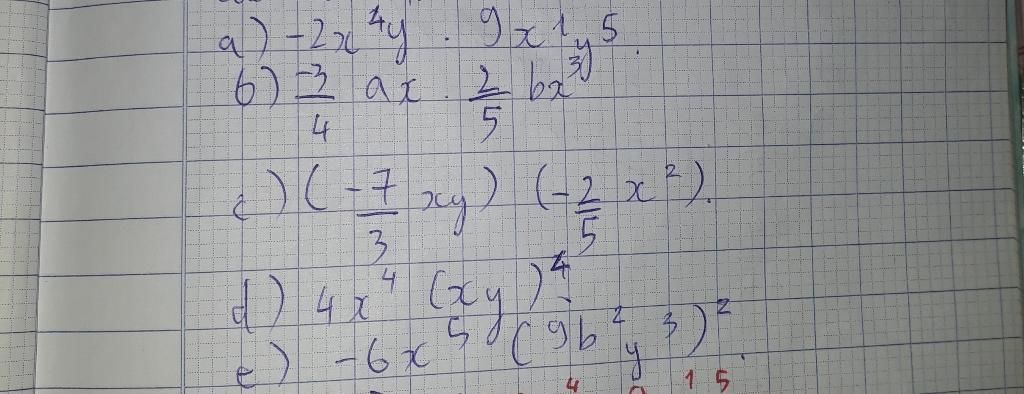 a) -2x⁴y . 9x¹y⁵.
b) -3/4 ax . 2/5 bx³y
c) (-7/3 xy) (-2/5 x²).
d) 4x⁴ (xy)⁴
e) -6x⁵ (9b²y³)².
4 1 5